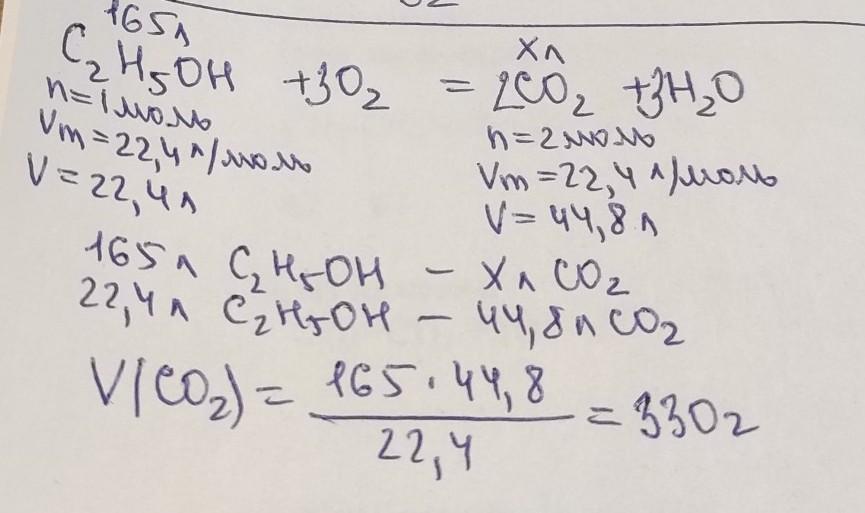 165л хл
C₂H₅OH +3O₂ = 2CO₂ +3H₂O
n=1моль n=2моль
Vm=22,4л/моль Vm=22,4л/моль
V=22,4л V=44,8л
165л C₂H₅OH – хл CO₂
22,4л C₂H₅OH – 44,8лCO₂
V(CO₂) = 165·44,8 / 22,4 = 330л